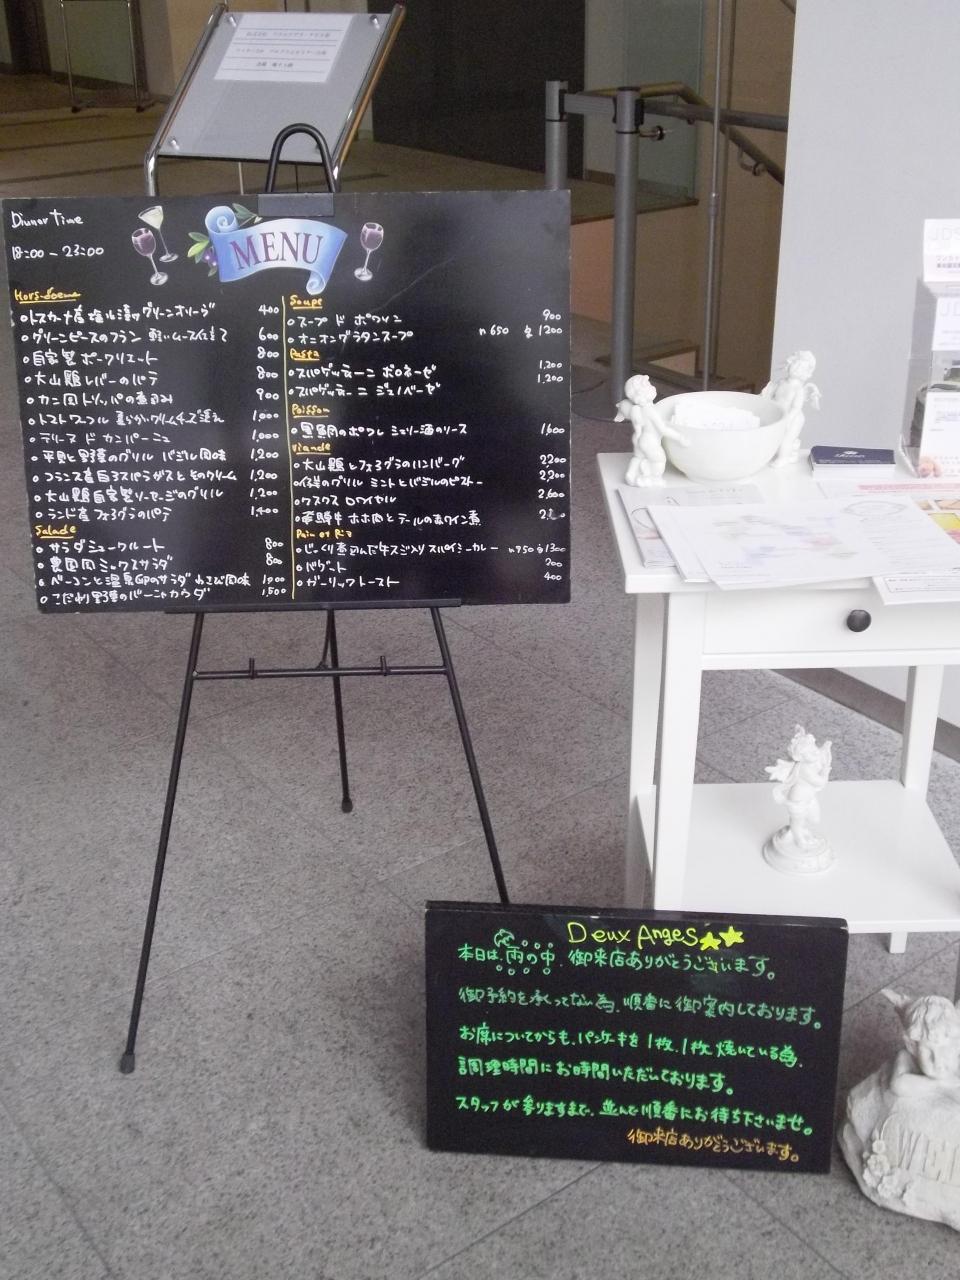 Diunor Time
18:00 - 23:00
MENU
Hors-doeuve
トスカーナ産塩水漬けグリーンオリーブ 400
グリーンピースのフラン 軽いムース仕立て 600
自家製ポークリエット 800
大山鶏レバーのパテ 800
カン肉トリッパの煮込み 900
トマトワッフル 柔らかクリームチーズ添え 1,000
テリーヌ ド カンパーニュ 1,000
平貝と野菜のグリル バジル風味 1,200
フランス産白アスパラガスとそのクリーム 1,200
大山鶏自家製ソーセージのグリル 1,200
ランド産フォアグラのパテ 1,400
Salade
サラダシュークルート 800
農園風ミックスサラダ 800
ベーコンと温泉卵のサラダ わさび風味
こだわり野菜のバーニャカウダ 1,500
Soupe
スープ ド ポワソン 900
オニオングラタンスープ h 650 1200
Pasta
スパゲッティーニ ボロネーゼ 1,200
スパゲッティーニ ジェノベーゼ 1,200
Poisson
黒鯛のポワレ シェリー酒のソース 1,600
Viande
大山鶏とフォアグラのハンバーグ 2200
仔羊のグリル ミントとバジルのピストー 2,200
クスクス ロワイヤル 2,600
飛騨牛 ホホ肉とテールの赤ワイン煮
Pain et Riz
じっくり煮込んだ牛スジ入りスパイシーカレー h950 1300
バゲート 200
ガーリックトースト 400
Deux Anges
本日は、雨の中、御来店ありがとうございます。
御予約を承ってない為、順番に御案内しております。
お席についてからも、パンケーキを1枚、1枚焼いている為、
調理時間にお時間いただいております。
スタッフが参りますまで、並んで順番にお待ち下さいませ。
御来店ありがとうございます。